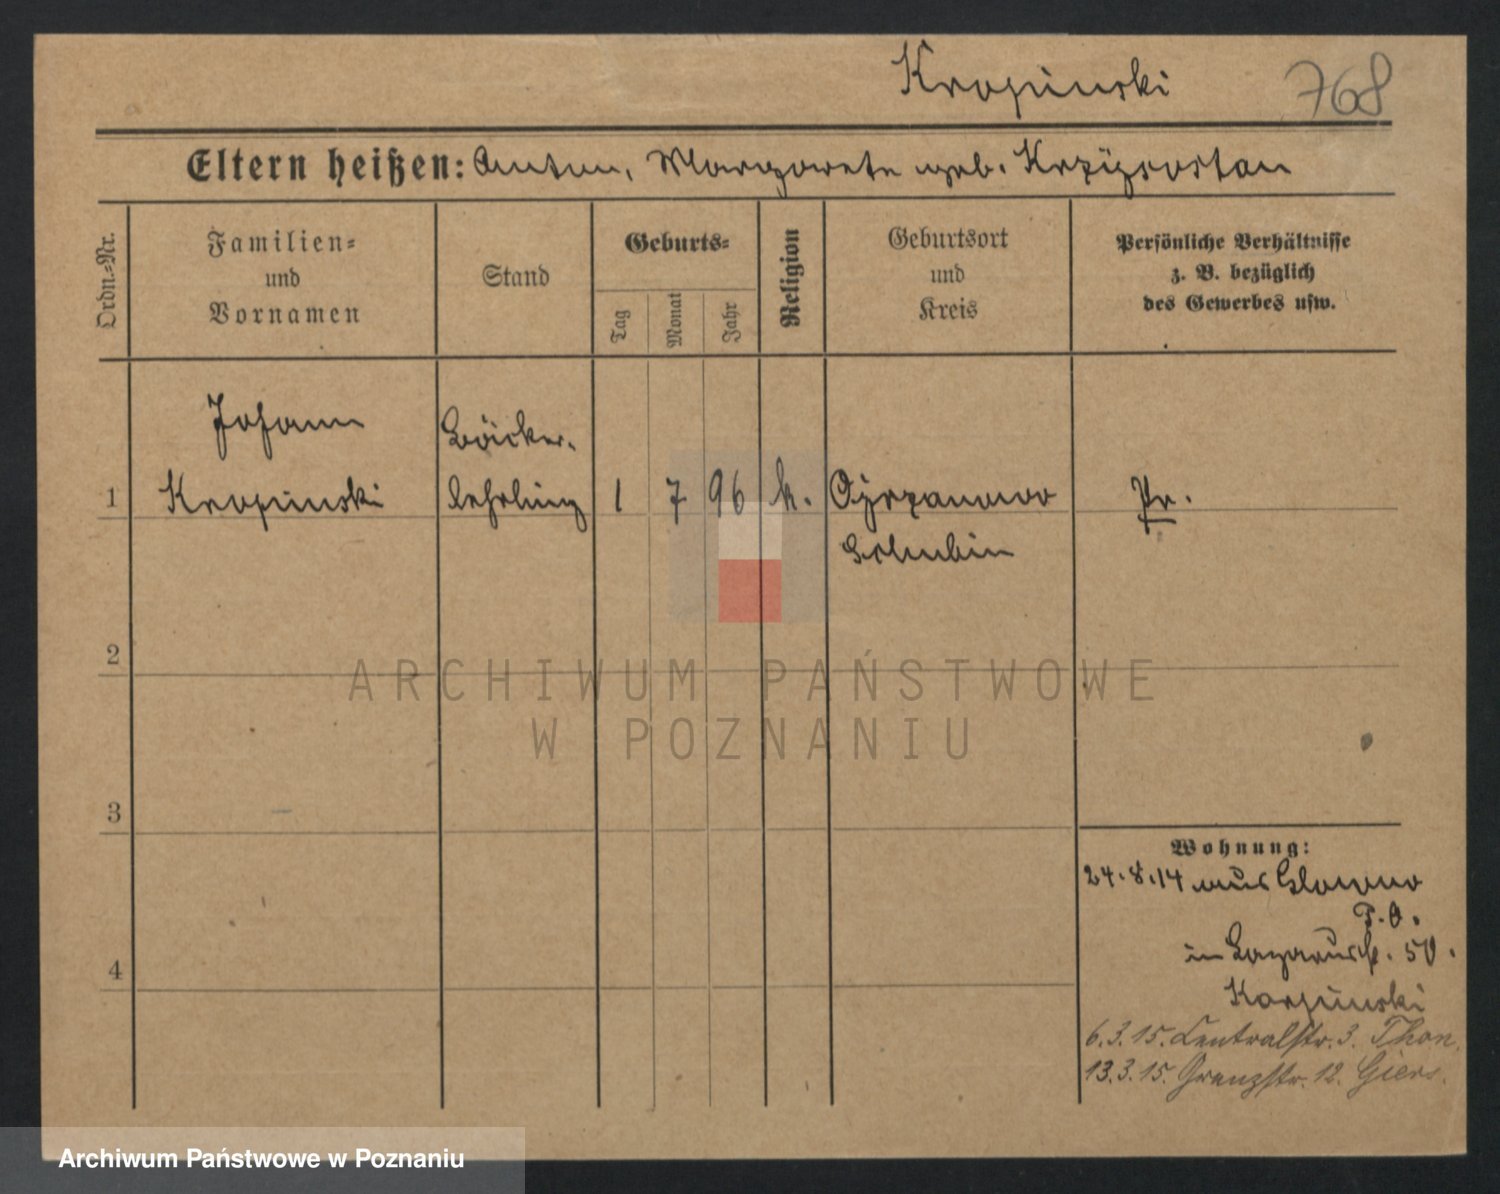 Kropinski 768
Eltern heißen: Anton, Margarete geb. Krzyżostan
Ordn.-Nr.
Familien-
und
Vornamen
Stand
Geburts-
Tag
Monat
Jahr
Religion
Geburtsort
und
Kreis
Persönliche Verhältnisse
z. B. bezüglich
des Gewerbes usw.
Johann Bäcker-
1 Kropinski lehrling 1 7 96 k. Pr.
Schubin
2
3
4
Wohnung:
24.8.14 aus Glowno
P.O.
in Lazarusstr. 50.
Karpinski
6.3.15. Centralstr. 3. Thon.
13.3.15. Grenzstr. 12. Giers.
ARCHIWUM PAŃSTWOWE
W POZNANIU
Archiwum Państwowe w Poznaniu